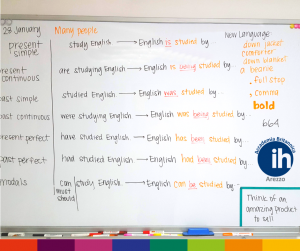 28 January
Many people
New Language:
present simple
study English → English is studied by
down jacket
comforter
down blanket
a beanie
present continuous
are studying English → English is being studied by
. full stop
, comma
past simple
studied English → English was studied by
bold
past continuous
were studying English → English was being studied by
664
present perfect
have studied English → English has been studied by
past perfect
had studied English → English had been studied by
modals
can
must
should
study English → English can be studied by
Accademia Britannica
ih
Arezzo
Think of an
amazing product
to sell